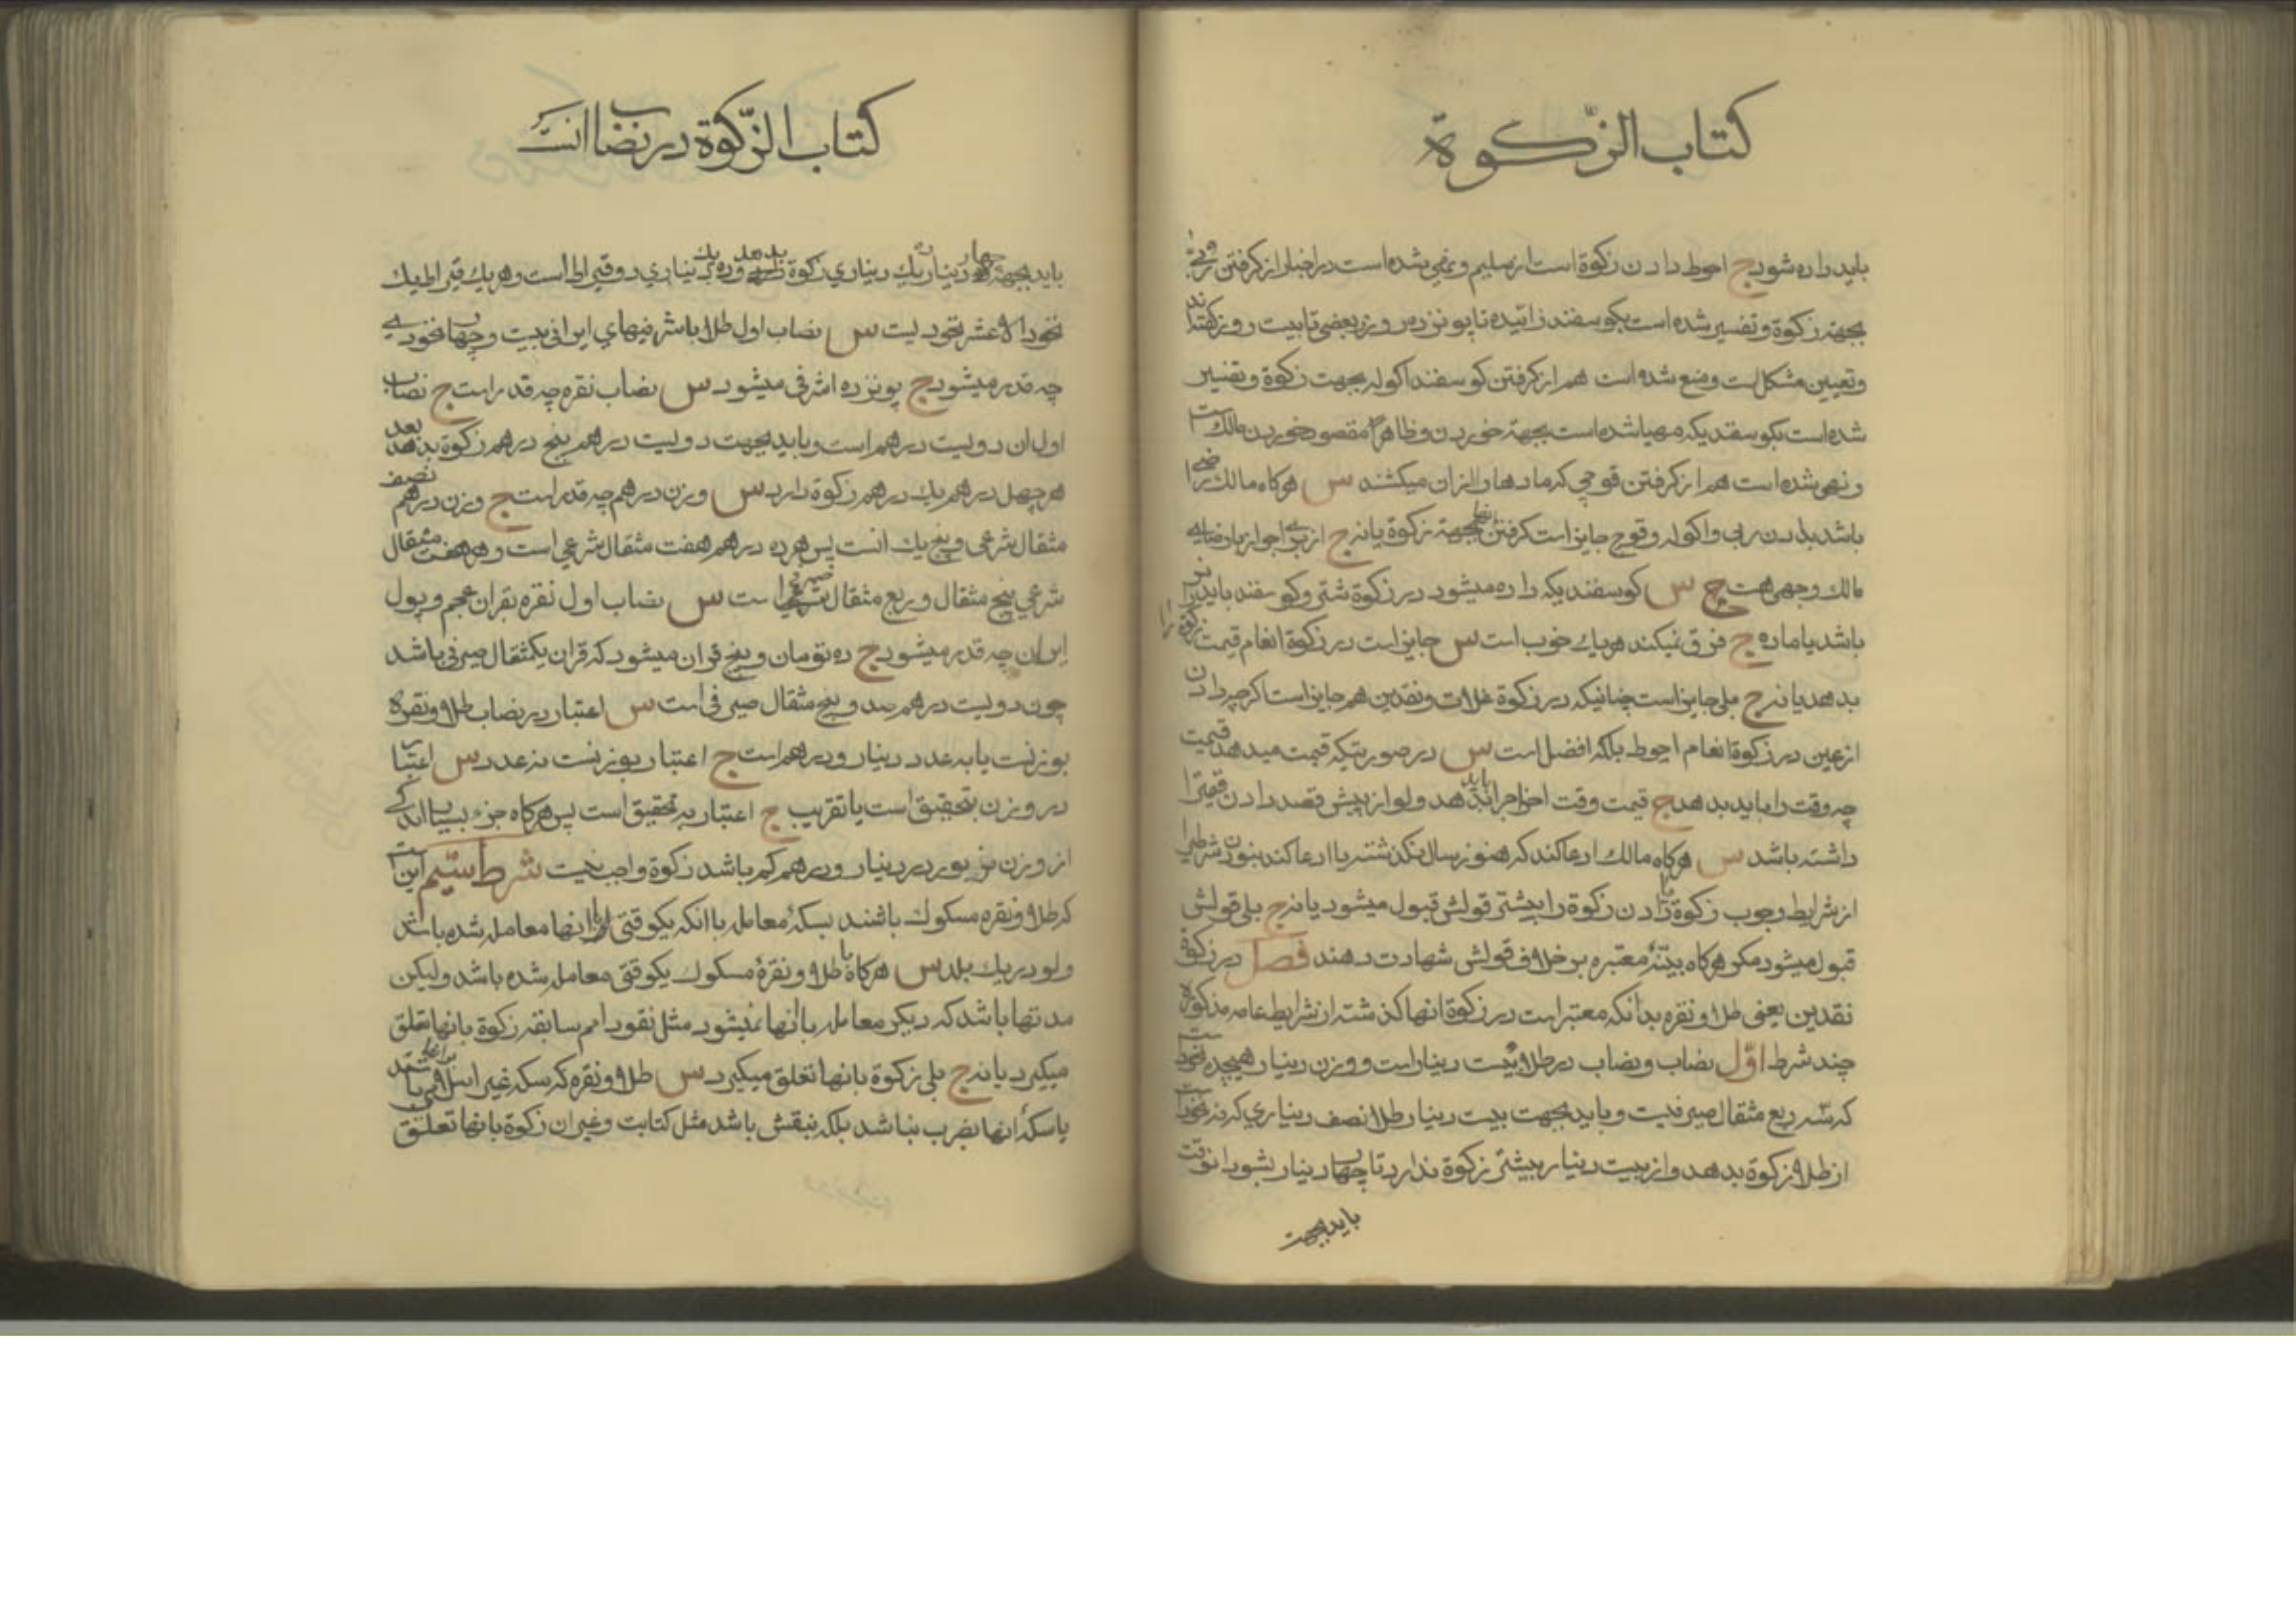 كتاب الزّكوة
بايد داده شود ج احوط دادن زكوة است از سليم و نهى شده است در اخبار از كرفتن ربّى
بجهة زكوة و تفسير شده است بكوسفند زائيده تا پونزده روز و بعضى تا بيست روز كفته‌اند
و تعيين مشكل است و منع شده است هم از كرفتن كوسفند اكوله بجهت زكوة و تفسير
شده است بكوسفنديكه مهيا شده است بجهة خوردن و ظاهرا مقصود خوردن مالك است
و نهى شده است هم از كرفتن قوچى كه مادها را از ان ميكشند س هركاه مالك راضى
باشد بدادن ربى و اكوله و قوچ جايز است كرفتن انها بجهة زكوة يا نه ج از براى جواز با رضاى
مالك وجهى هست س كوسفنديكه داده ميشود در زكوة شتر و كوسفند بايد نر
باشد يا ماده ج فرق نميكند هر يك خوب است س جايز است در زكوة انعام قيمت زكوة را
بدهد يا نه ج بلى جايز است چنانيكه در زكوة غلات و نقدين هم جايز است اكرچه دادن
از عين در زكوة انعام احوط بلكه افضل است س در صورتيكه قيمت ميدهد قيمت
چه وقت را بايد بدهد ج قيمت وقت اخراج را بايد بدهد ولو از پيش قصد دادن قيمة را
داشته باشد س هركاه مالك ادعا كند كه هنوز سال نكذشته يا ادعا كند نبودن شرطى را
از شرايط وجوب زكوة يا دادن زكوة را بيشتر قولش قبول ميشود يا نه ج بلى قولش
قبول ميشود مكر هركاه بيّنهٔ معتبره بر خلاف قولش شهادت دهند فصل در زكوة
نقدين يعنى طلا و نقره بدانكه معتبر است در زكوة انها كذشته از شرايط عامه مذكوره
چند شرط اوّل نصاب و نصاب در طلا بيست دينار است و وزن دينار هيجده نخود است
كه سه ربع مثقال صيرفيست و بايد بجهت بيست دينار طلا نصف دينارى كه نه نخود است
از طلا زكوة بدهد و از بيست دينار بيشتر زكوة ندارد تا چهار دينار بشود انوقت
بايد بجهت
كتاب الزّكوة در نصاب انست
بايد بجهة چهار دينار يك دينارى زكوة بدهد و ده يك دينارى دو قيراط است و هر يك قيراط يك
نخود الا عشر نخوديست س نصاب اول طلا باشرفيهاى ايرانى بيست و چهار نخودى
چه قدر ميشود ج پونزده اشرفى ميشود س نصاب نقره چه قدر است ج نصاب
اول ان دويست درهم است و بايد بجهت دويست درهم پنج درهم زكوة بدهد بعد
هر چهل درهم يك درهم زكوة دارد س وزن درهم چه قدر است ج وزن درهم نصف
مثقال شرعى و پنج يك انست پس هر ده درهم هفت مثقال شرعى است و هر هفت مثقال
شرعى پنج مثقال و ربع مثقال صيرفى است س نصاب اول نقره بقران عجم و پول
ايران چه قدر ميشود ج ده تومان و پنج قران ميشود كه قران يكمثقال صيرفى باشد
چون دويست درهم صد و پنج مثقال صيرفى است س اعتبار در نصاب طلا و نقره
بوزنست يا به عدد دينار و درهم است ج اعتبار بوزنست نه عدد س اعتبار
در وزن بتحقيق است يا تقريب ج اعتبار به تحقيق است پس هركاه جزء بسيار اندكى
از وزن مزبور در دينار و درهم كم باشد زكوة واجب نيست شرط سيّم اين است
كه طلا و نقره مسكوك باشند بسكهٔ معامله با انكه يكوقتى با انها معامله شده باشد
ولو در يك بلد س هركاه با طلا و نقرهٔ مسكوك يكوقتى معامله شده باشد وليكن
مدتها باشد كه ديكر معامله با انها نميشود مثل نقود امم سابقه زكوة بانها تعلق
ميكيرد يا نه ج بلى زكوة بانها تعلق ميكيرد س طلا و نقره كه سكه غير اسلامى باشد
يا سكهٔ انها بضرب نباشد بلكه بنقش باشد مثل كتابت و غير ان زكوة بانها تعلق